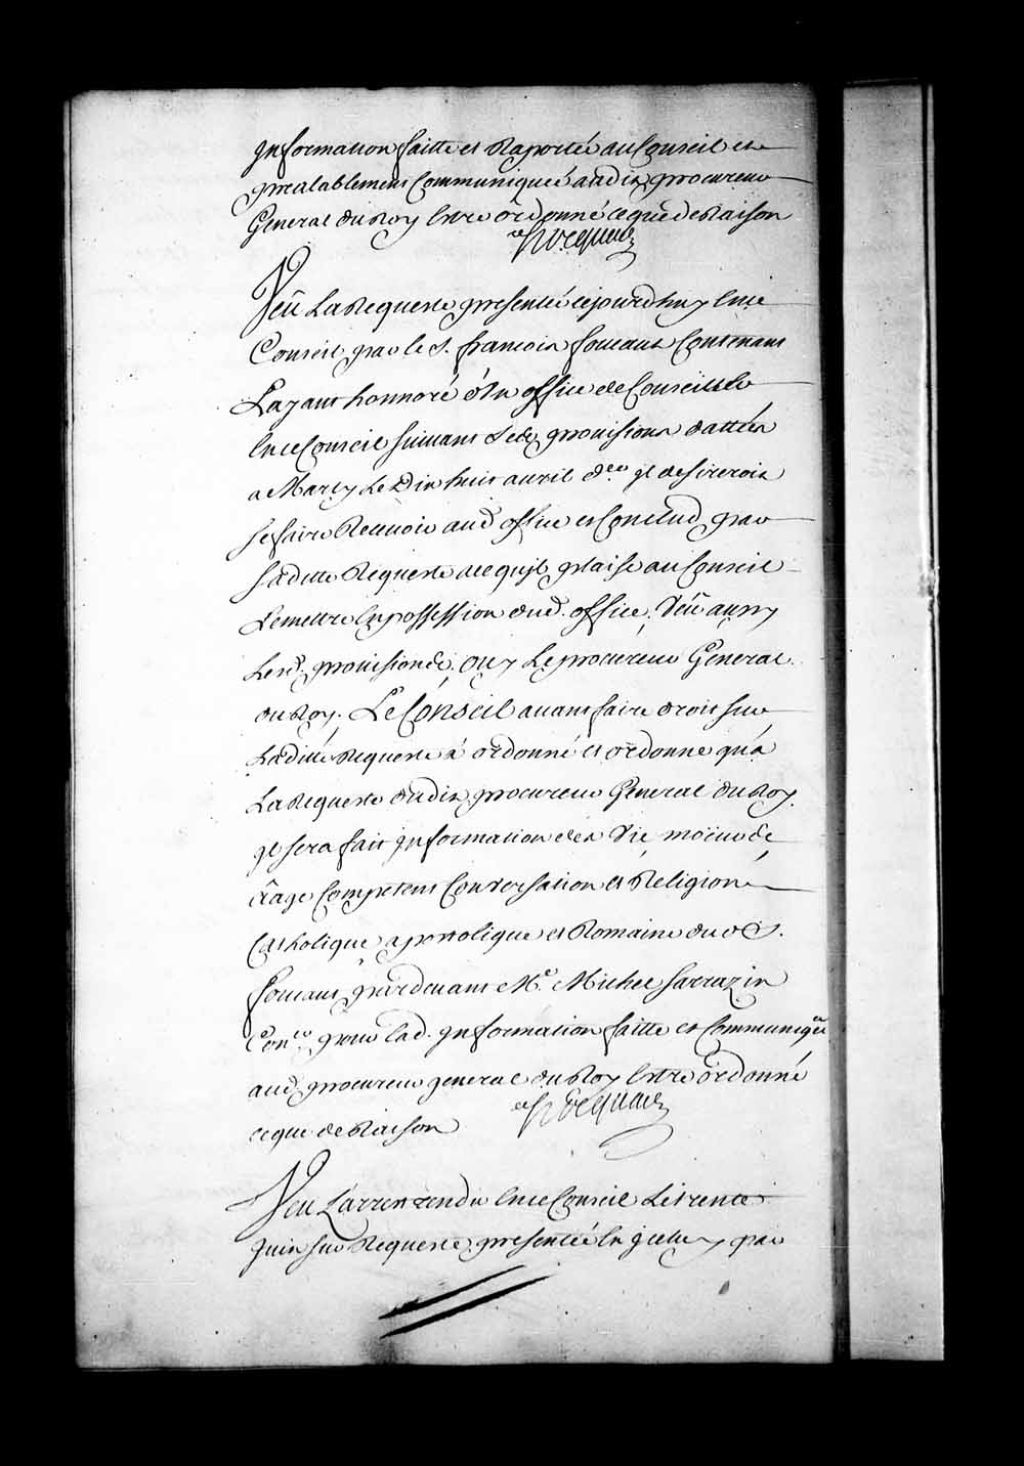 Information faitte et Raportée au Conseil et
prealablement Communiquée audit procureur
General du Roy Estre ordonné ce que de Raison
Veü La Requeste presentée cejourdhuy En ce
Conseil par le S. françois foucault Contenant
Layant honnoré d'Un office de Conseiller
En ce Conseil suivant Ses provisions dattées
a Marly Le Dix huit avril d.er il desireroit
se faire Recevoir aud office et Conclud par
Ladite Requeste ace quil plaise au Conseil
Le mettre En possession dud. office, Veü aussy
Lesd. provisions, ouy Le procureur General
du Roy. Le Conseil avant faire droit sur
Laditte Requeste à ordonné et ordonne qu'a
La Requeste dudit procureur General du Roy
Il sera fait Information des Vie, moeurs
âage Competent Conversation et Religion
Catholique apostolique et Romaine dud S.
foucault pardevant Me. Michel Sarrazin
Con.er pour lad. Information faitte et Communiquée
aud. procureur general du Roy Estre ordonné
ce que de Raison
Veu L'arrest rendu En ce Conseil Le trente
Juin sur Requeste presentée En iceluy par